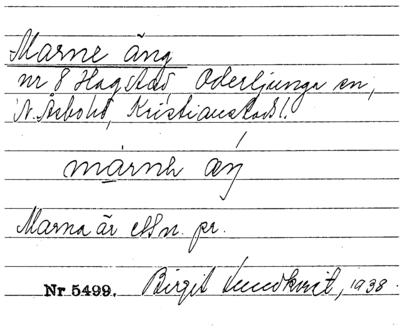 Marne äng
nr 8 Hagstad, Oderljunga sn,
N. Åsbohd, Kristianstads l.
märnə æŋ
Marna är ett n. pr.
Nr 5499. Birgit Lundkvist, 1938.